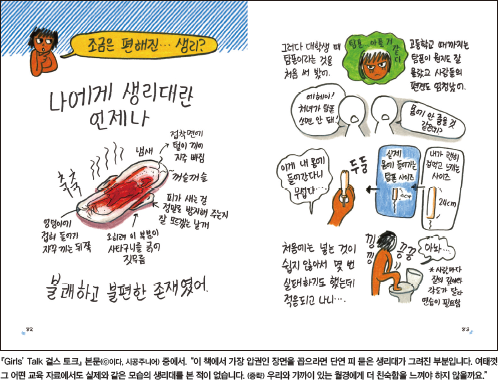 조금은 편해진… 생리?
나에게 생리대란
언제나
냄새
접착면이
털에 끼여
자꾸 빠짐
축축
꺼슬꺼슬
피가 새는 걸
엉덩이에
자꾸 끼는 뒤쪽
오히려 이 부분이
사타구니를 긁어
불쾌하고 불편한 존재였어.
22
그러다 대학생 때
탐폰이라는 것을
처음 써 봤어.
고등학교 때까지는
탐폰이 뭔지도 잘
몰랐고 사람들의
편견도 엄청났어.
에헤이!
처녀가 탐폰
쓰면 안 돼!
몸에 안 좋을 것
같은데?
이게 내 몸에
들어간다니
무섭다…
두둥
실제
몸에 들어가는
탐폰 사이즈
내가 막연히
사이즈
24cm
처음에는 넣는 것이
쉽지 않아서 몇 번
실패하기도 했는데
적응되고 나니…
낑낑
끙끙
아놔…
*사람마다
질의 길이와
각도가 달라
연습이 필요함
23
『Girls' Talk 걸스 토크』 본문(ⓒ이다, 시공주니어) 중에서. "이 책에서 가장 압권인 장면을 꼽으라면 단연 피 묻은 생리대가 그려진 부분입니다. 여태껏
그 어떤 교육 자료에서도 실제와 같은 모습의 생리대를 본 적이 없습니다. (중략) 우리와 가까이 있는 월경에게 더 친숙함을 느껴야 하지 않을까요."